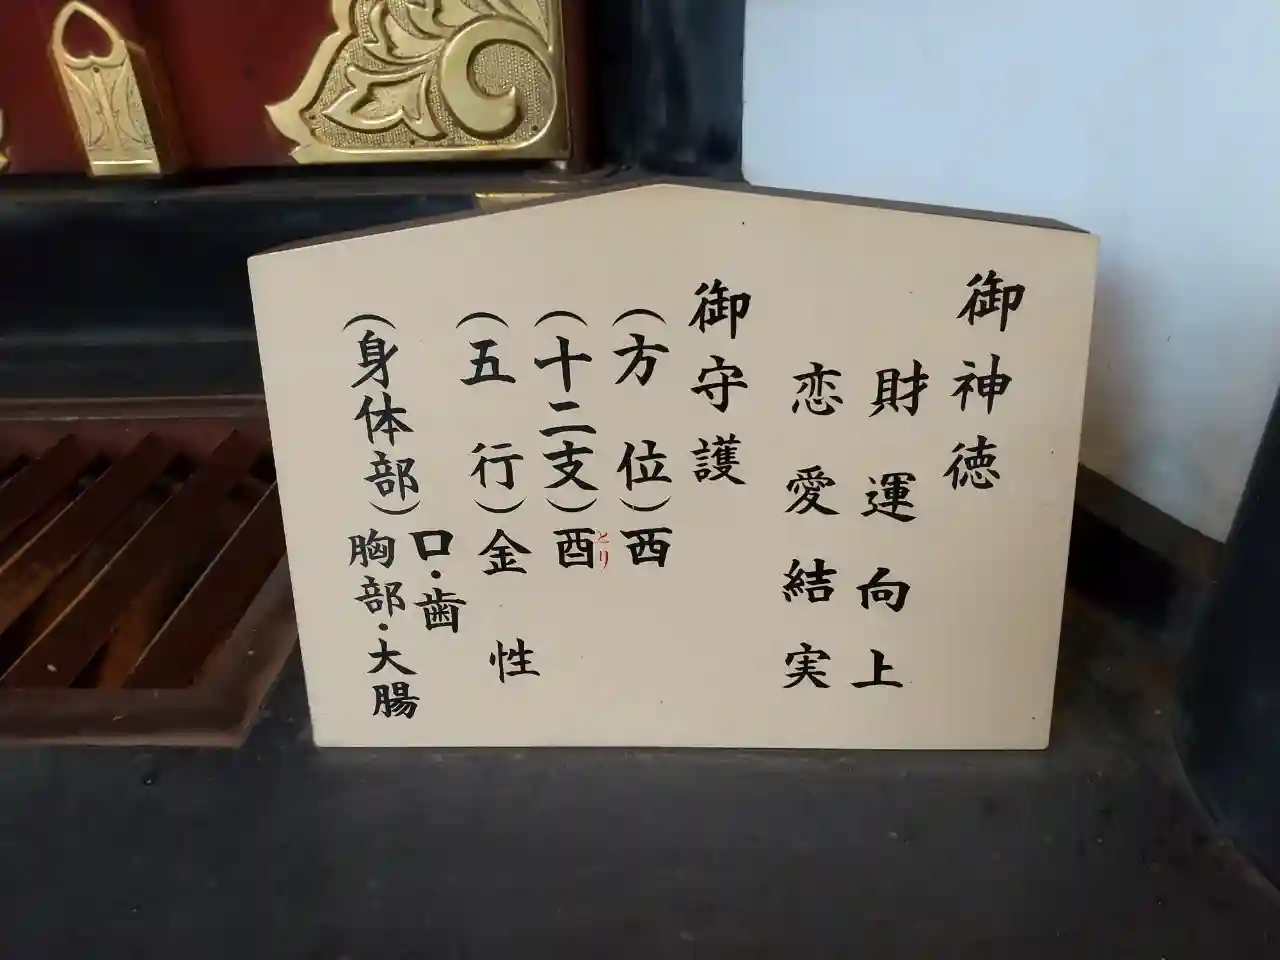 御神徳
財運向上
恋愛結実
御守護
(方位)西
(十二支)酉
とり
(五行)金性
(身体部)口・歯
胸部・大腸